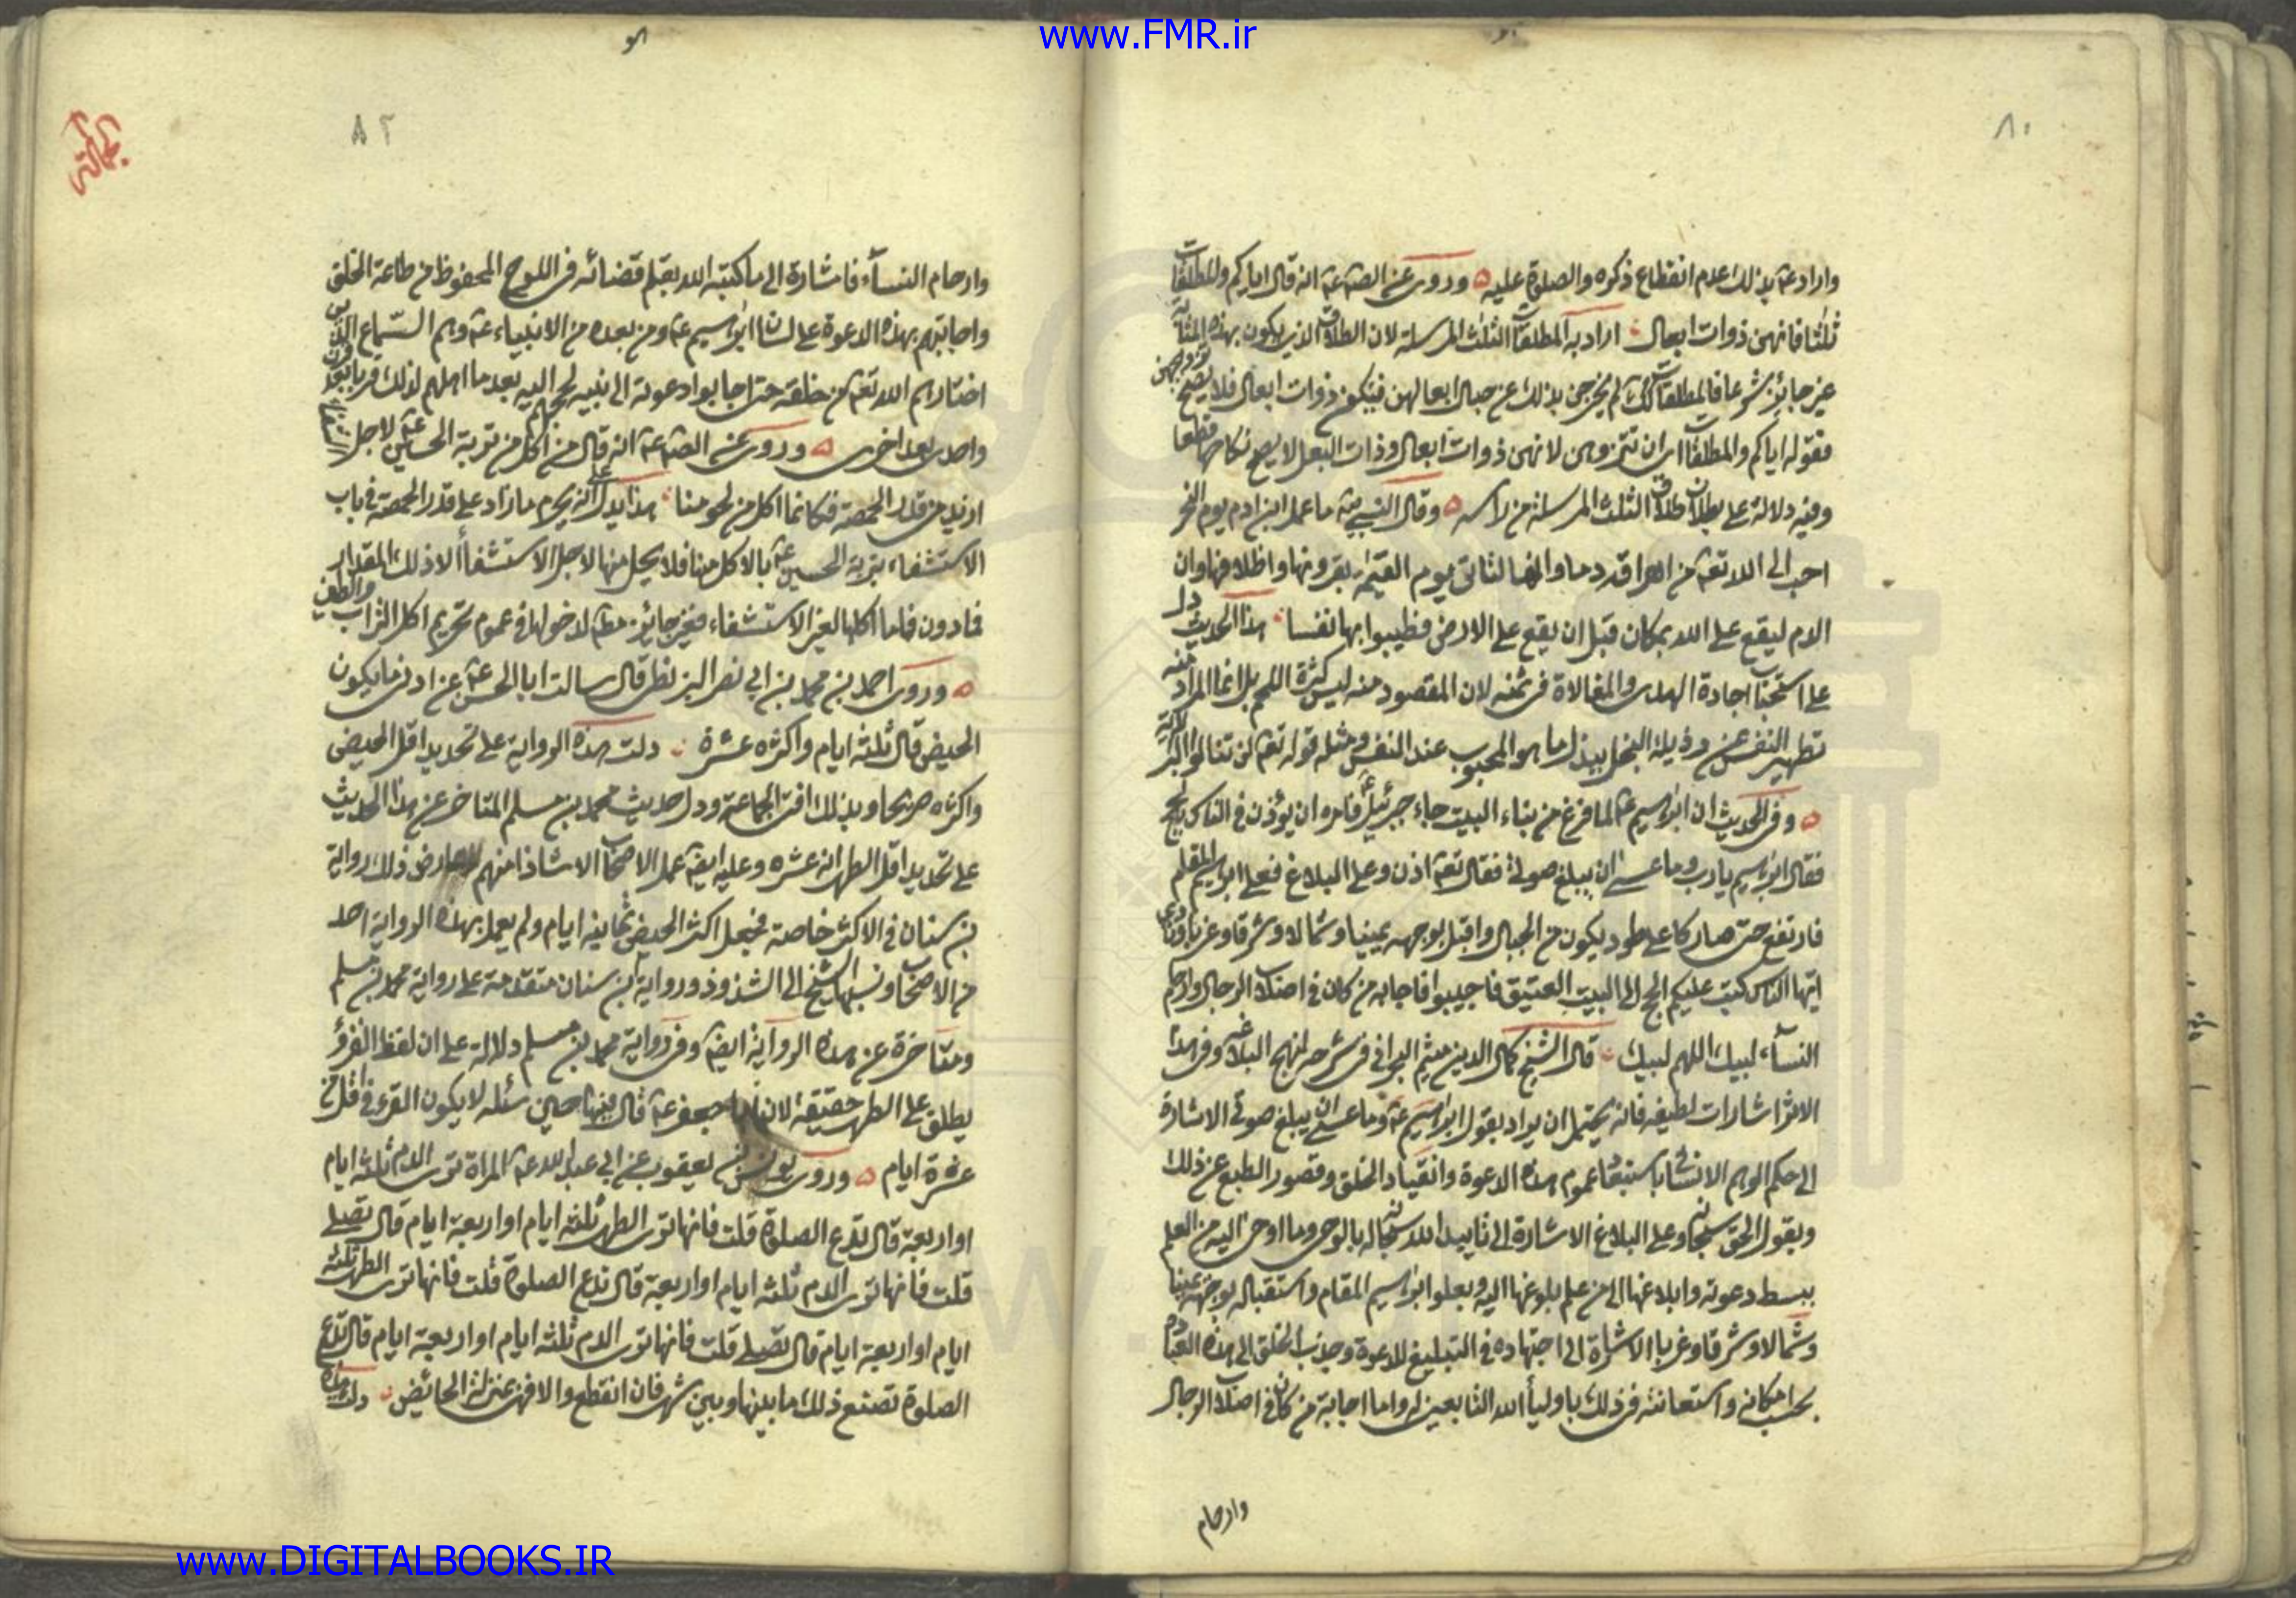 www.FMR.ir
٨٠
واراد عه بذلك عدم انقطاع ذكره والصلوة عليه وروى عن الصه عه انه قال اياكم والمطلقات
ثلثا فانهن ذوات ابعال اراد به المطلقات الثلث المرسلة لان الطلاق الذى يكون بهذه المثابة
غير جائز شرعا فالمطلقات كك لم يخرجن بذلك عن حبال ابعالهن فيكن ذوات ابعال فلا يصح تزويجهن
فقوله اياكم والمطلقات اى ان تتزوجوهن لانهن ذوات ابعال وذات البعل لا يصح نكاحها قطعا
وفيه دلالة على بطلان طلاق الثلث المرسلة من راسه وقال النبى صه ما عمل ابن ادم يوم النحر
احب الى الله تعه من اهراقه دما وانها لتاتى يوم القيمة بقرونها واظلافها وان
الدم ليقع على الله بمكان قبل ان يقع على الارض فطيبوا بها نفسا هذا الحديث دل
على استحباب اجادة الهدى والمغالاة فى ثمنه لان المقصود منه ليس كثرة اللحم بل انما المراد منه
تطهير النفس عن رذيلة البخل ببذل ما هو المحبوب عند النفس ومثله قوله تعه لن تنالوا البر الاية
وفى الحديث ان ابراهيم عه لما فرغ من بناء البيت جاء جبرئيل فامره ان يؤذن فى الناس بالحج
فقال ابراهيم يا رب وما عسى ان يبلغ صوتى فقال تعه اذن وعلى البلاغ فعلى ابراهيم المقام
فارتفع حتى صار كاعلى طود يكون من الجبال واقبل بوجهه يمينا وشمالا وشرقا وغربا ونادى
ايها الناس كتب عليكم الحج الى البيت العتيق فاجيبوا فاجابه من كان فى اصلاب الرجال وارحام
النساء لبيك اللهم لبيك قال الشيخ كمال الدين ميثم البحرانى فى شرح نهج البلاغة وفى هذا
الاثر اشارات لطيفة فانه يحتمل ان يراد بقول ابراهيم عه وما عسى ان يبلغ صوتى الاشارة
الى حكم الوهم الانسانى باستبعاد عموم هذه الدعوة وانقياد الخلق وقصور الطبع عن ذلك
وبقول الحق سبحانه وعلى البلاغ الاشارة الى تاييد الله سبحانه له بالوحى وما اوحى اليه من العلم
ببسط دعوته وابلاغها الى من علم بلوغها اليه وبعلو ابراهيم المقام واستقباله بوجهه يمينا
وشمالا وشرقا وغربا الاشارة الى اجتهاده فى التبليغ للدعوة وجذب الخلق الى هذه العبادة
بحسب امكانه واستعانته فى ذلك باولياء الله التابعين له واما اجابة من كان فى اصلاب الرجال
وارحام
٨٢
وارحام النساء فاشارة الى ما كتبه الله بقلم قضائه فى اللوح المحفوظ من طاعة الخلق
واجابتهم بهذه الدعوة على لسان ابراهيم عه ومن بعده من الانبياء عه وهم السماع الذين
اختارهم الله تعه من خلقه حتى اجابوا دعوته الى بيته لحجهم اليه بعد ما اهلهم لذلك قربا بعد قرن
واحدى بعد اخرى وروى عن الصه عه انه قال من اكل من تربة الحسين عه لاجل
ازيد من قدر الحمصة فكانما اكل من لحومنا هذا يدل على انه يحرم ما زاد على قدر الحمصة فى باب
الاستشفاء بتربة الحسين عه بالاكل منها فلا يحل منها لاجل الاستشفاء الا ذلك المقدار
فما دون فاما اكلها لغير الاستشفاء فغير جائز مطه لدخولها فى عموم تحريم اكل التراب والطين
وروى احمد بن محمد بن ابى نصر البزنطى قال سالت ابا الحسن عه عن ادنى ما يكون
الحيض قال ثلثة ايام واكثره عشرة دلت هذه الرواية على تحديد اقل الحيض
واكثره صريحا وبذلك افتى الجماعة ودل حديث محمد بن مسلم المتاخر عن هذا الحديث
على تحديد اقل الطهر انه عشره وعليه ايضه عمل الاصحاب الا شاذا منهم وعارض ذلك رواية
بن سنان فى الاكثر خاصة فجعل اكثر الحيض ثمانية ايام ولم يعمل بهذه الرواية احد
من الاصحاب ونسبها الشيخ الى الشذوذ ورواية بن سنان متقدمة على رواية محمد بن مسلم
ومتاخرة عن هذه الرواية ايضه وفى رواية محمد بن مسلم دلالة على ان لفظ القرؤ
يطلق على الطهر حقيقة لان ابا جعفر عه قال فيها حين سئله لا يكون القرء فى اقل من
عشرة ايام وروى يونس بن يعقوب عن ابى عبد الله عه المراة ترى الدم ثلثة ايام
او اربعة قال تدع الصلوة قلت فانها ترى الطهر ثلثة ايام او اربعة ايام قال تصلى
قلت فانها ترى الدم ثلثة ايام او اربعة قال تدع الصلوة قلت فانها ترى الطهر ثلثة
ايام او اربعة ايام قال تصلى قلت فانها ترى الدم ثلثة ايام او اربعة ايام قال تدع
الصلوة تصنع ذلك ما بينها وبين شهر فان انقطع والا فهى بمنزلة الحائض دلت هذه
www.DIGITALBOOKS.IR